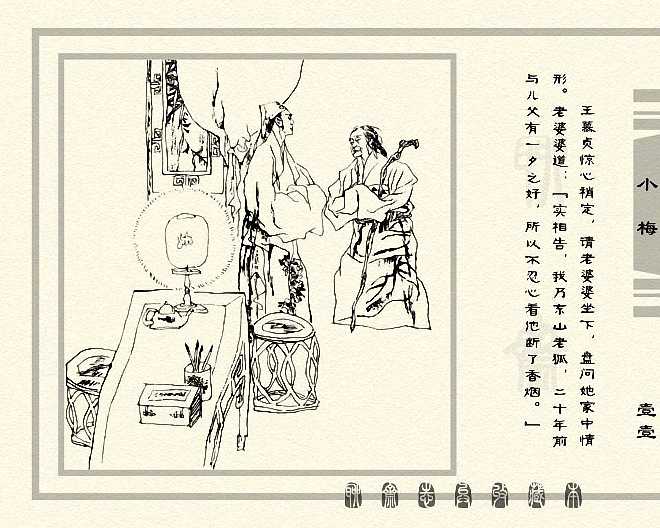 王慕贞惊心稍定，请老婆婆坐下，盘问她家中情
形。老婆婆道：「实相告，我乃东山老狐，二十年前
与儿父有一夕之好，所以不忍心看他断了香烟。」
小梅
壹壹
聊斋志异珍藏本